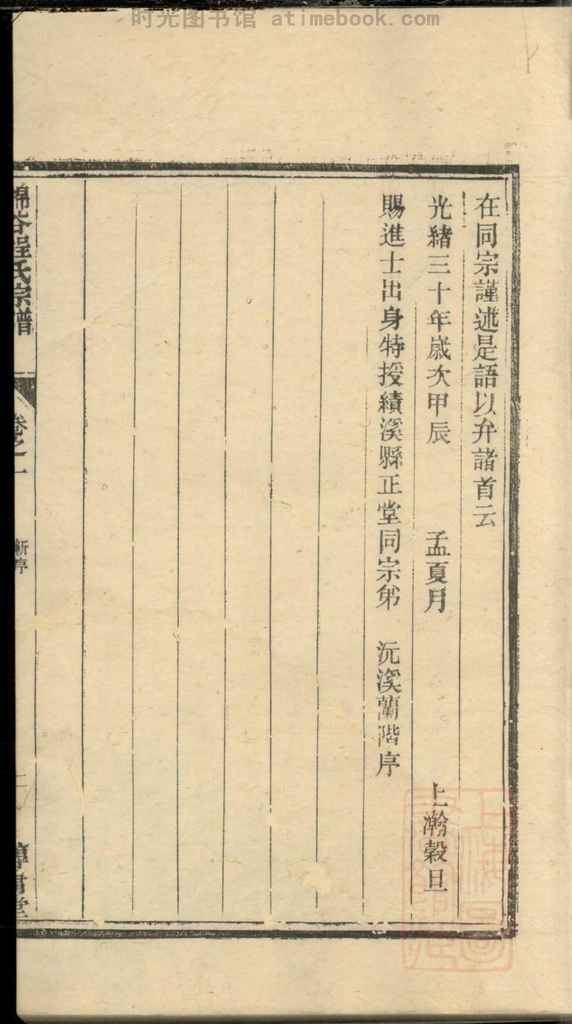 时光图书馆 atimebook.com
在同宗謹述是語以弁諸首云
光緒三十年歲次甲辰 孟夏月 上瀚穀旦
賜進士出身特授績溪縣正堂同宗弟 沅溪蘭階序
谷程氏宗譜 卷之一 新序